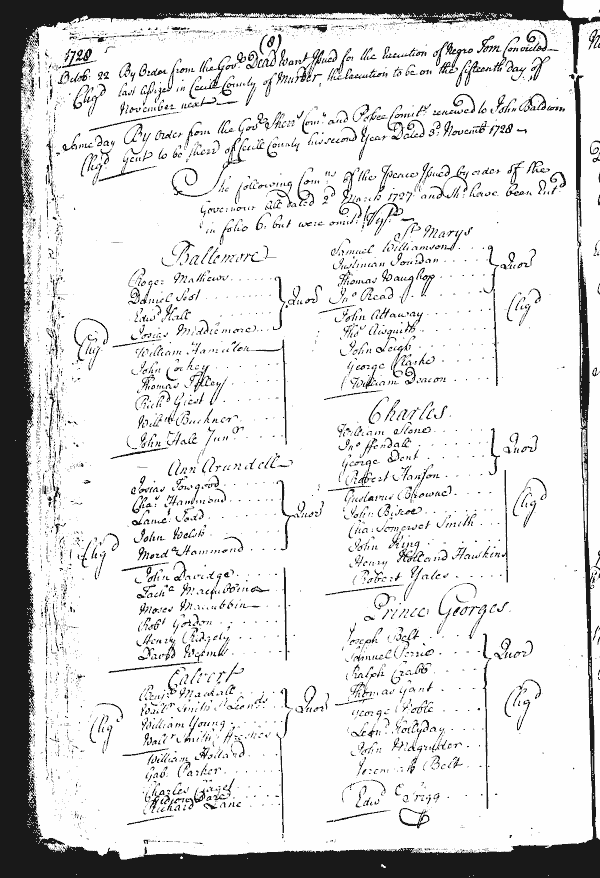 (8)
1728
Octob. 22 By Order from the Gov.r Dead Warrt Issued for the Execution of Negro Tom Convicted
last Assizes in Cecill County of Murder, the Execution to be on the fifteenth day of
November next
Same day By Order from the Gov.r Sherr.s Com.n and Posse Comit.s renewed to John Baldwin
Gent to be Sherr of Cecill County his second Year Dated 3.d Novembr 1728
The following Com.ns of the Peace Issued by order of the
Governour all dated 2.d March 1727 and sho.d have been Ent.d
in folio 6. but were omit.d
Baltemore
Roger Mathews
Daniel Scot
Edw.d Hall
Josias Middlemore
Quor
William Hamilton
John Cockey
Thomas
Rich.d Gist
Will.m Buckner
John Hall Jun.r
Ann Arundell
Josias Towgood
Cha.s Hammond
Lance Todd
John Welsh
Mord.a Hammond
Quor
John Davidge
Zach.a Maccubbin
Moses Maccubbin
Rob.t Gordon
Henry Ridgely
David Weems
Calvert
Benj.a Mackall
Walt.r Smith Leon.ds
William Young
Walt.r Smith
Quor
William Holland
Gab. Parker
Charles
Richard Lane
S.t Marys
Samuel Williamson
Justinian Jordan
Thomas Waughop
Jn.o Read
Quor
John Attaway
Tho.s Aisquith
John Leigh
George Clarke
William Deacon
Charles
William Stone
Jn.o Fendall
George Dent
Robert Hanson
Quor
Gustavus Browne
John Briscoe
Cha. Somerset Smith
John King
Henry Holland Hawkins
Robert Yates
Prince Georges
Joseph Belt
Samuel Perrie
Ralph Crabb
Thomas Gant
Quor
George Noble
Leon.d Hollyday
John Magruder
Jeremiah Belt
Edw.d Sprigg